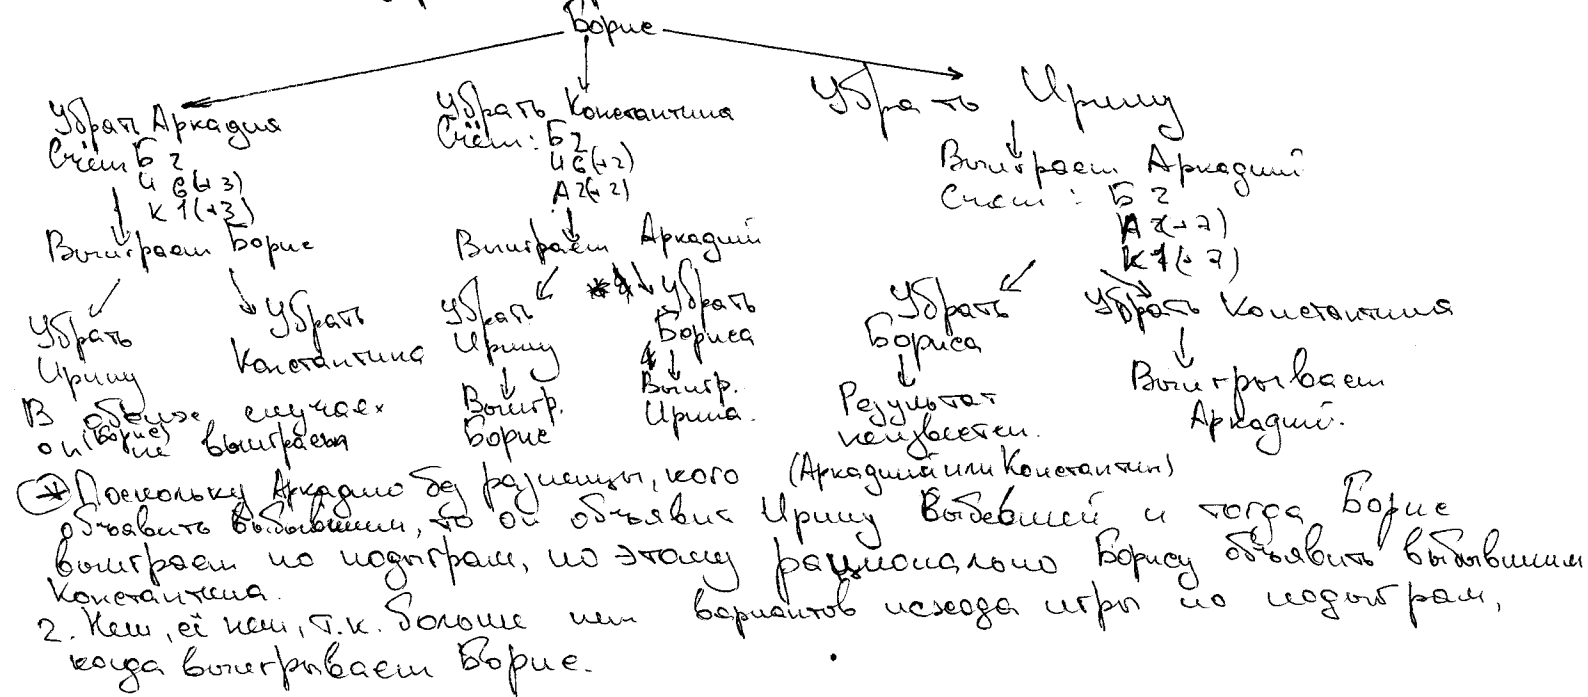 Борис
Убрать Аркадия
Счёт Б 2
И 6(+3)
К 1(+3)
Выиграет Борис
Убрать Ирину
Убрать Константина
В обоих случаях
он (Борис) не выиграет
Убрать Константина
Счёт: Б 2
И 6(+2)
А 2(+2)
Выиграет Аркадий
Убрать Ирину
Выигр. Борис
Убрать Бориса
Выигр. Ирина.
Убрать Ирину
Выиграет Аркадий
Счет: Б 2
А 2(+7)
К 1(+7)
Убрать Бориса
Результат неизвестен.
Убрать Константина
Выигрывает Аркадий.
* Поскольку Аркадию без разницы, кого (Аркадий или Константин)
объявить выбывшим, то он объявит Ирину выбывшей и тогда Борис
выиграет по подыграм, по этому рационально Борису объявить выбывшим
Константина.
2. Нет, её нет, т.к. больше нет вариантов исхода игры по подыграм,
когда выигрывает Борис.